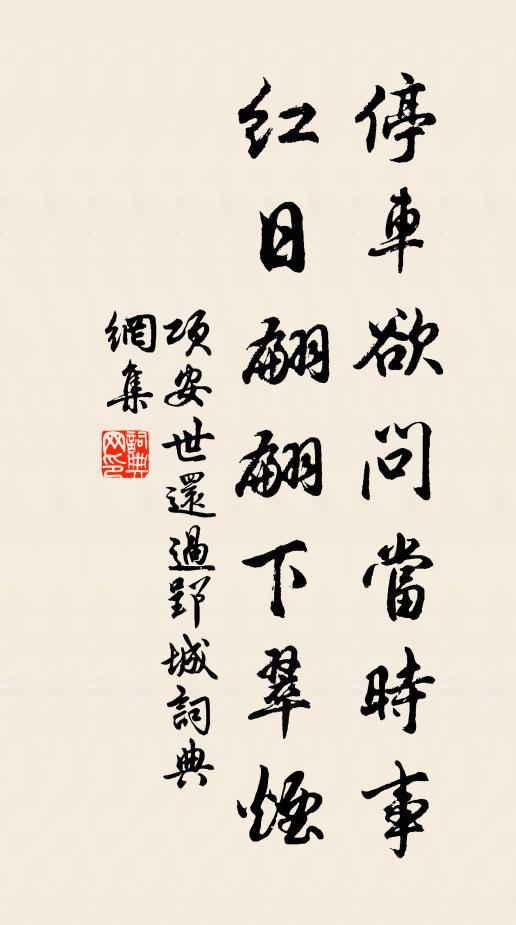 停車欲問當時事
紅日翩翩下翠煙
項安世還過郢城詞典
網集
詞典
网印